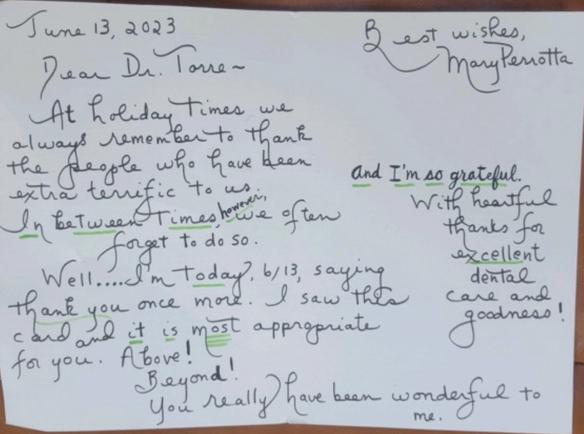 June 13, 2023
Dear Dr. Torre~
At holiday times we
always remember to thank
the people who have been
extra terrific to us.
In between times, however, we often
forget to do so.
Well....I'm today, 6/13, saying
thank you once more. I saw this
card and it is most appropriate
for you. Above!
Beyond!
You really have been wonderful to
me.
and I'm so grateful.
With heartful
thanks for
excellent
dental
care and
goodness!
Best wishes,
Mary Perrotta